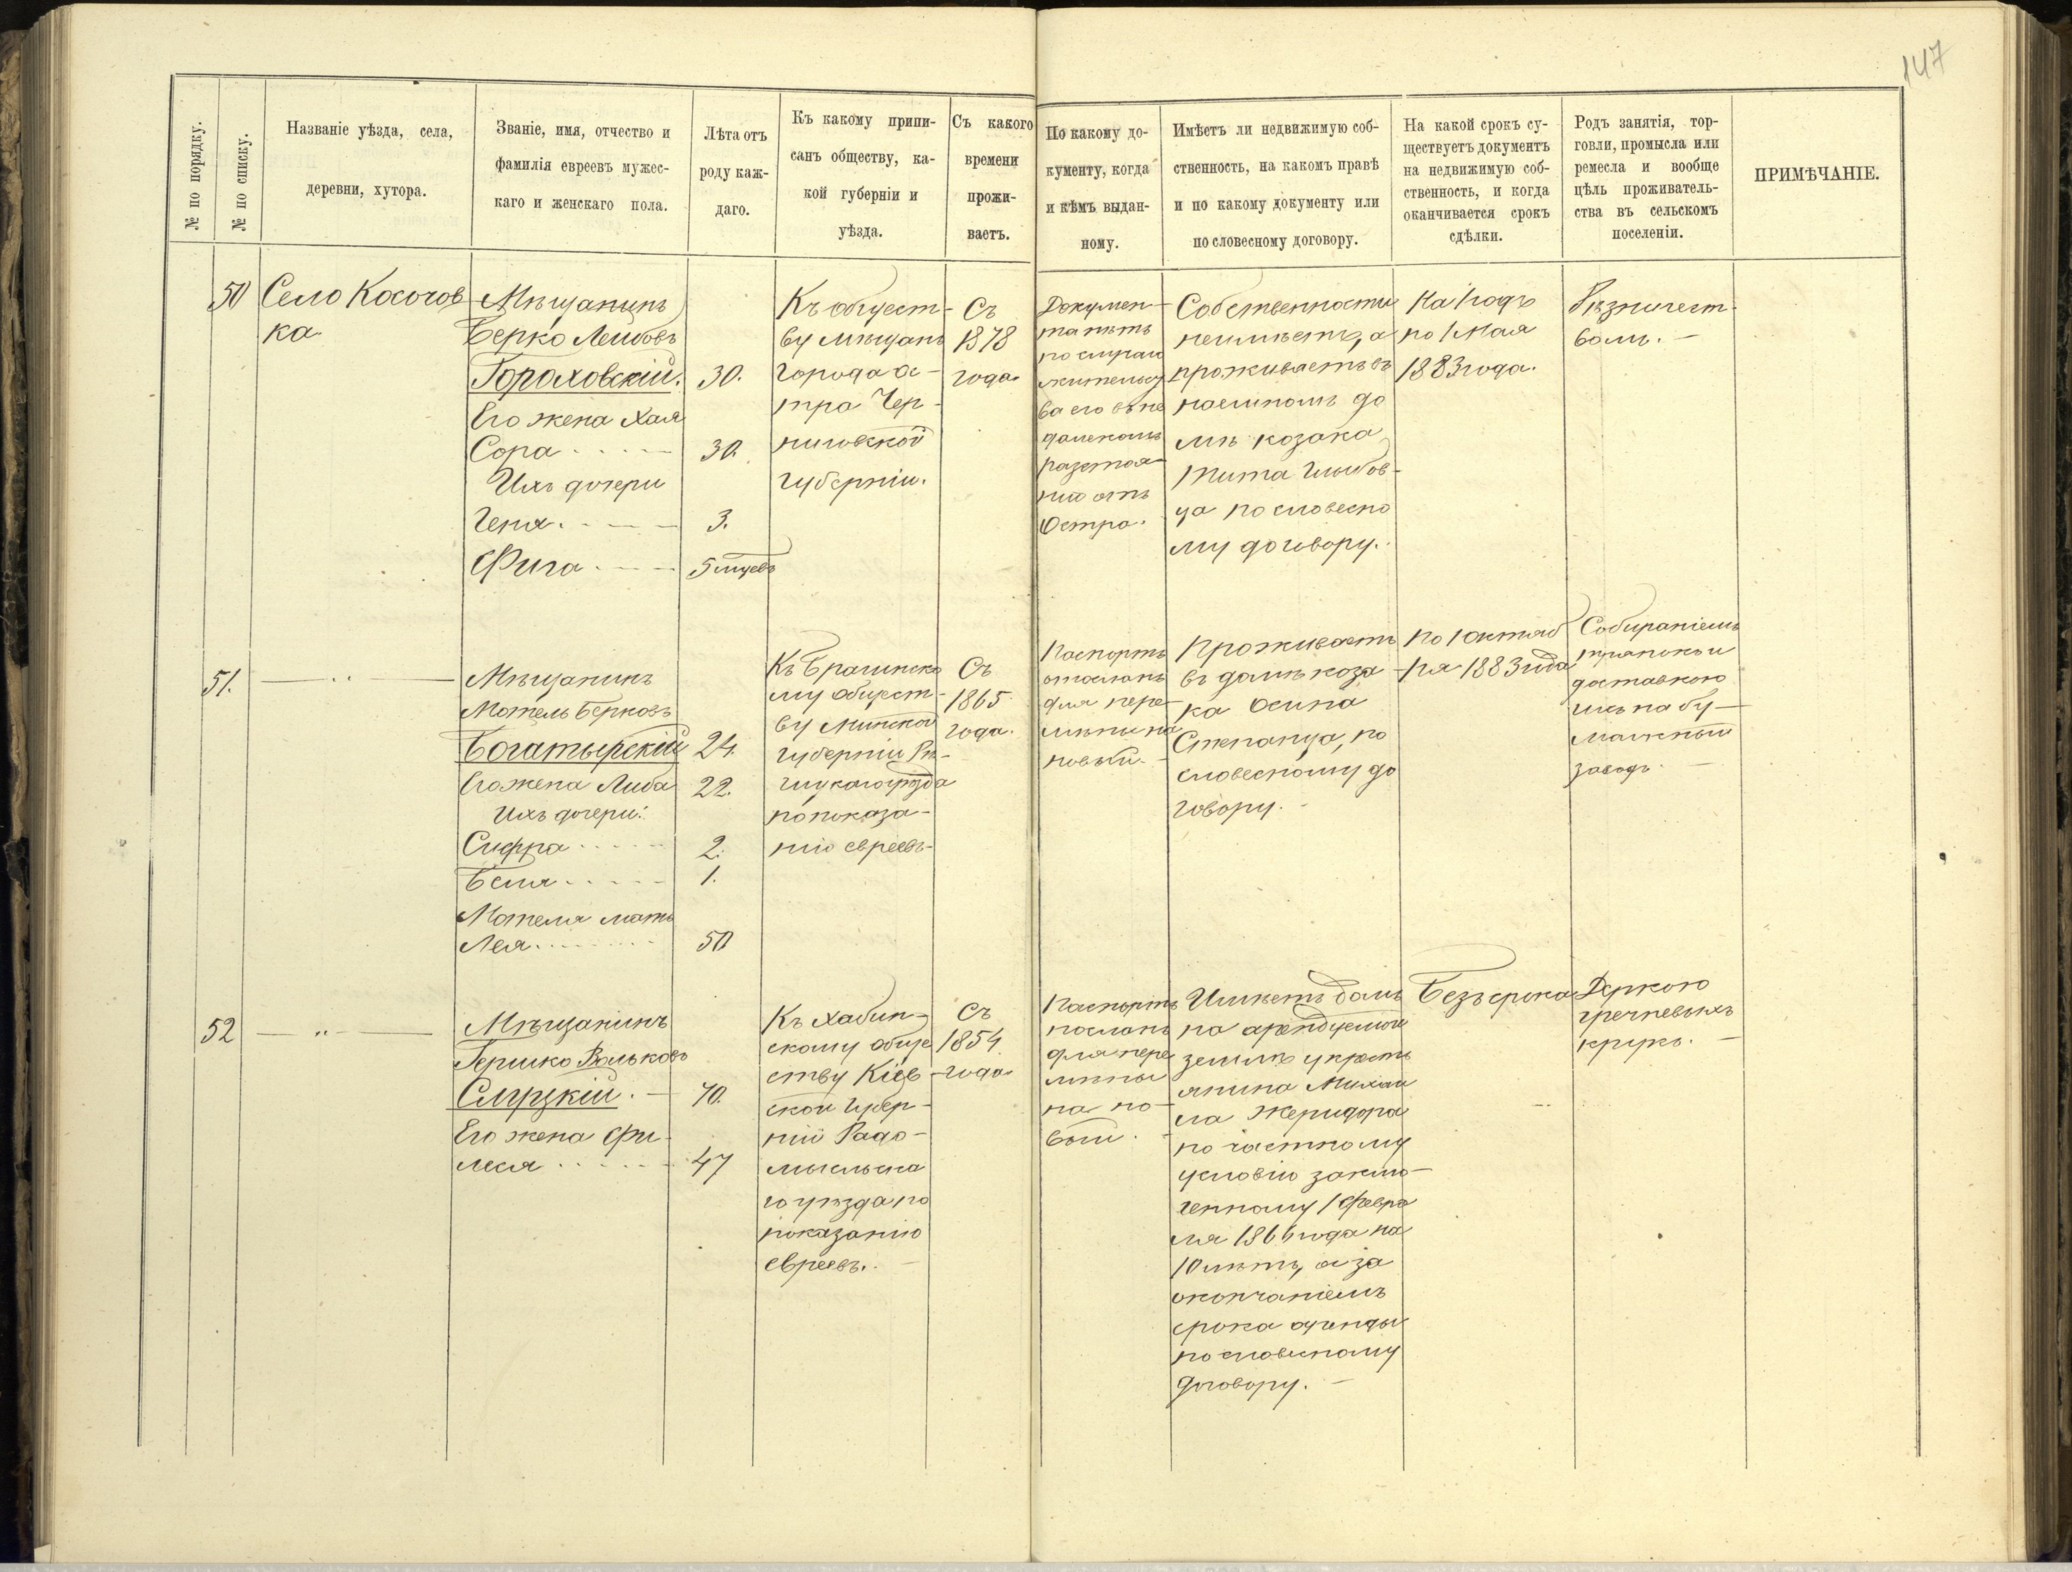 147
№ по порядку.
№ по списку.
Названіе уѣзда, села,
деревни, хутора.
Званіе, имя, отчество и
фамилія евреевъ мужес-
каго и женскаго пола.
Лѣта отъ
роду каж-
даго.
Къ какому припи-
санъ обществу, ка-
кой губерніи и
уѣзда.
Съ какого
времени
прожи-
ваетъ.
По какому до-
кументу, когда
и кѣмъ выдан-
ному.
Имѣетъ ли недвижимую соб-
ственность, на какомъ правѣ
и по какому документу или
по словесному договору.
На какой срокъ су-
ществуетъ документъ
на недвижимую соб-
ственность, и когда
оканчивается срокъ
сдѣлки.
Родъ занятія, тор-
говли, промысла или
ремесла и вообще
цѣль проживатель-
ства въ сельскомъ
поселеніи.
ПРИМѢЧАНІЕ.
50
Село Косочов
ка
Мѣщанинъ
Берко Лейбовъ
Гороховскій. 30.
Его жена Хая
Сора 30.
Ихъ дочери
Геня. 3.
Фига 5 мцевъ
Къ общест-
ву мѣщанъ
города Ос-
тра Чер-
ниговской
губерніи.
Съ
1878
года
Докумен-
та нѣтъ
по случаю
жительст
ва его въ не
далекомъ
разстоя-
ніи отъ
Остра.
Собственности
неимѣетъ, а
проживаетъ въ
наемномъ до
мѣ козака
Тита
ца по словесно
му договору.
На 1 годъ
по 1 Мая
1883 года.
Рѣзничест-
вомъ.
51.
Мѣщанинъ
Мотель Берковъ
Богатырскій 24.
Его жена Либа 22.
Ихъ дочери:
Сифра 2.
Бейля 1.
Мотеля мать
Лея 50
Къ Брагинско
му общест-
ву Минской
губерніи Рѣ-
чицкаго уѣзда
по показа-
нію евреевъ
Съ
1865
года.
Паспортъ
отосланъ
для пере-
мѣны на
новый.
Проживаетъ
въ домѣ коза
ка Осипа
Степанца, по
словесному до
говору.
По 1 октяб
ря 1883 года
Собираніемъ
тряпокъ и
доставкою
ихъ на бу-
мажный
заводъ.
52
Мѣщанинъ
Гершко Вольковъ
Слуцкій. 70.
Его жена Фи-
леся 47
Къ Хабин-
скому обще
ству Кіев-
ской Губер-
ніи Радо-
мысльска
го уѣзда по
показанію
евреевъ.
Съ
1854
года
Паспортъ
посланъ
для пере
мѣны
на но-
вый.
Имѣетъ домъ
на арендуемой
землѣ у кресть
янина Михаи
ла Жеридора
по частному
условію заклю-
ченному 1 Февра
ля 1866 года на
10 лѣтъ, а за
окончаніемъ
срока аренды
по словесному
договору.
Безъ срока
Деркою
гречневыхъ
крупъ.